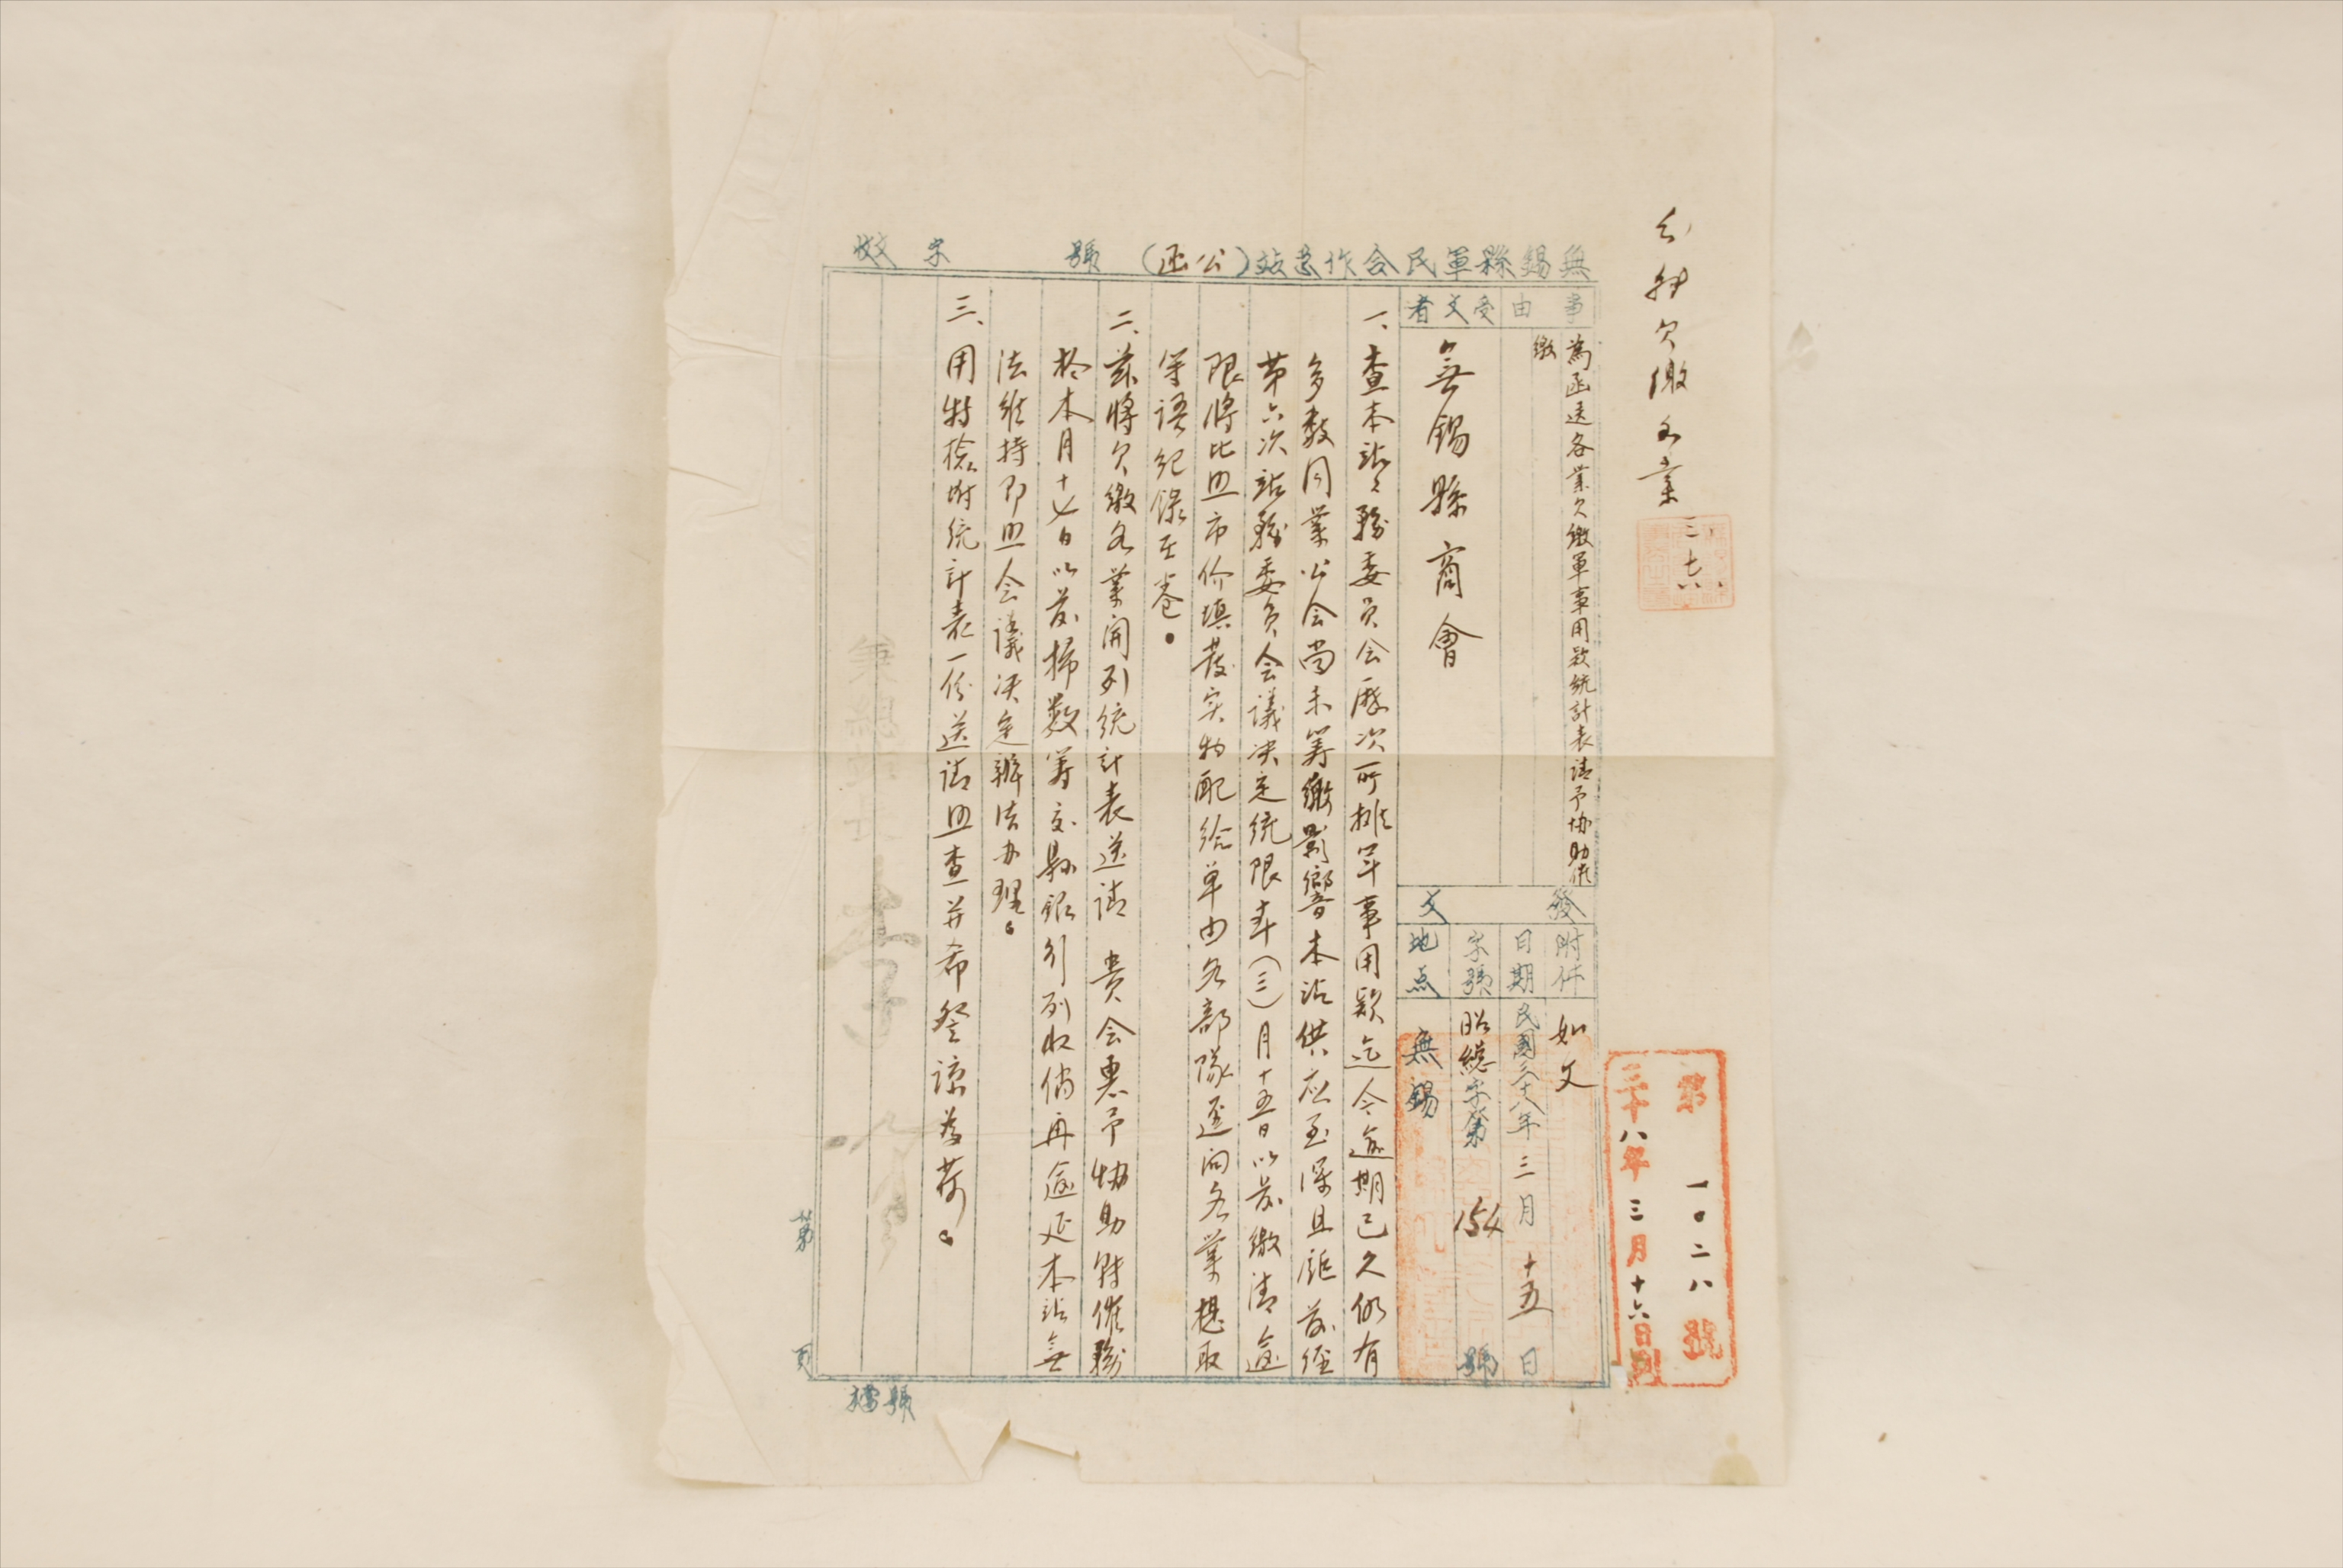 無錫縣軍民合作总站(公函)
號
字
收文
事由
為函送各業欠繳軍事用欵統計表請予协助催
繳
受文者
無錫縣商會
發文
附件
如文
日期
民國三十八年三月十五日
字號
昭總字第154號
地点
無錫
一、查本站站務委员会歷次所摊軍事用欵迄今逾期已久仍有
多数同業公会尚未筹繳影響本站供应至深且鉅前經
第六次站務委员会議决定統限本(三)月十五日以前繳清逾
限將比照市价填發实物配给单由各部隊逕向各業提取
等语纪録在卷。
二、兹將欠繳各業開列統計表送請 貴会惠予协助转催務
於本月十七日以前掃数筹交縣銀行列收倘再逾延本站無
法维持即照会議决定辦法办理。
三、用特檢附統計表一份送請照查并希詧諒为荷。
第 頁
檔號
分转欠繳各業
三、十六、
第一〇二八號
三十八年三月十六日到